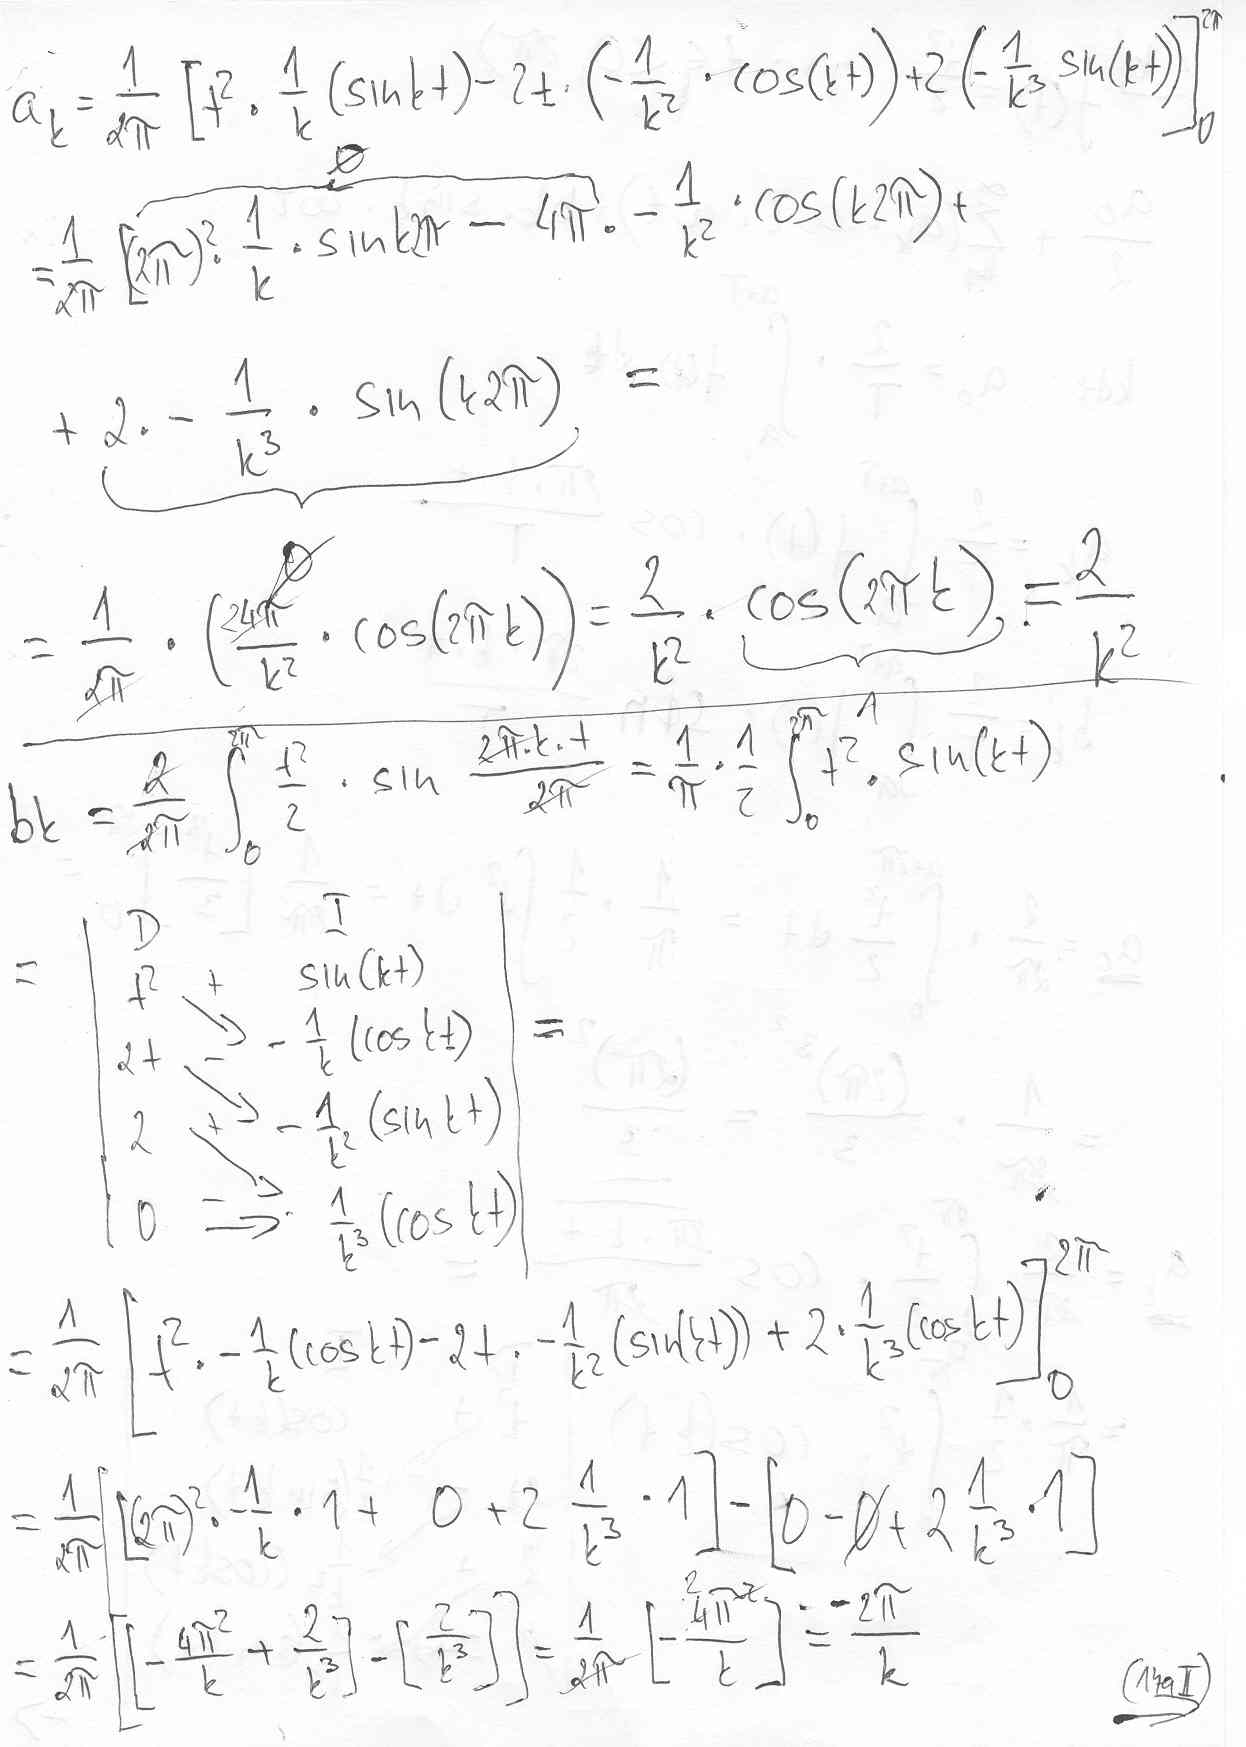 a_k = 1/2π [t² · 1/k (sin kt) - 2t · (-1/k² · cos(kt)) + 2 (-1/k³ sin(kt))]₀^2π
0
= 1/2π [(2π)² · 1/k · sin k2π - 4π · -1/k² · cos(k2π) +
+ 2 · -1/k³ · sin(k2π) =
= 1/2π · (24π/k² · cos(2πk)) = 2/k² · cos(2πk) = 2/k²
1
bk = 2/2π ∫₀^2π t²/2 · sin 2π·k·t/2π = 1/π · 1/2 ∫₀^2π t² · sin(kt)
D I
= t² + sin(kt)
2t - -1/k (cos kt) =
2 + -1/k² (sin kt)
0 - ⇒ 1/k³ (cos kt)
= 1/2π [t² · -1/k (cos kt) - 2t · -1/k² (sin(kt)) + 2 · 1/k³ (cos kt)]₀^2π
= 1/2π [[(2π)² · -1/k · 1 + 0 + 2 1/k³ · 1] - [0 - 0 + 2 1/k³ · 1]
= 1/2π [[-4π²/k + 2/k³] - [2/k³]] = 1/2π [-4π²/k] = -2π/k
(149I)